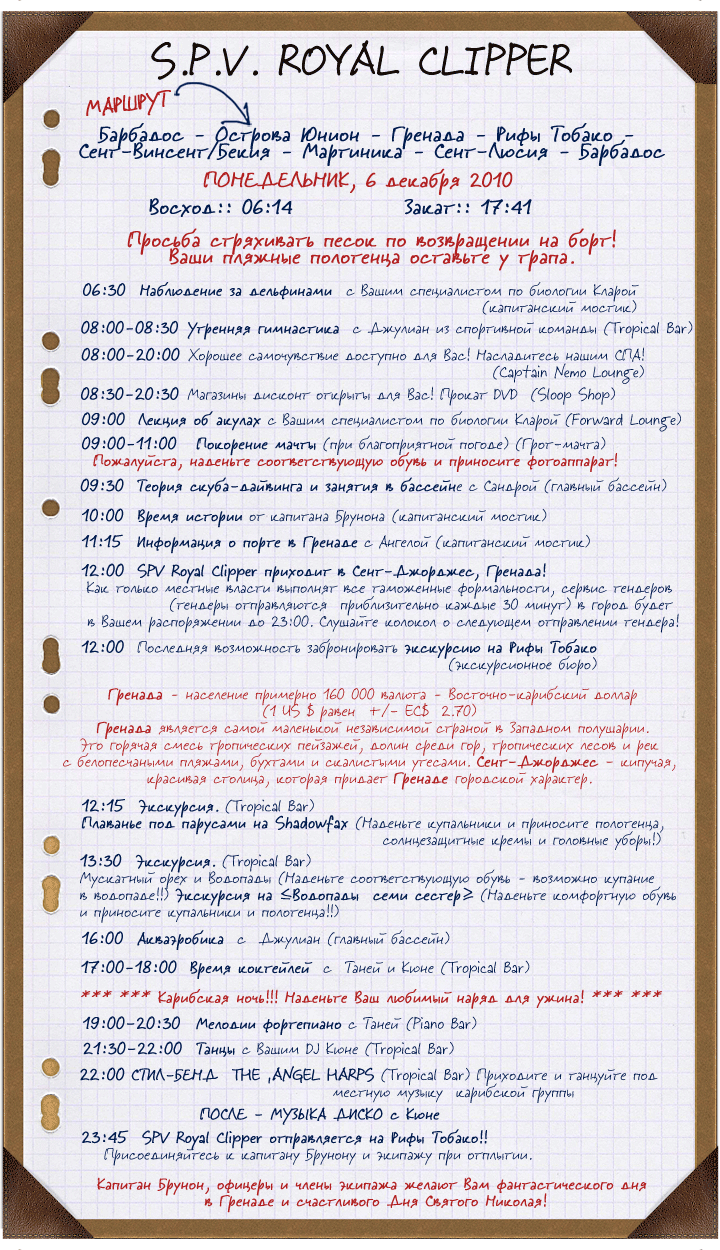 S.P.V. ROYAL CLIPPER
МАРШРУТ
Барбадос - Острова Юнион - Гренада - Рифы Тобако -
Сент-Винсент/Бекия - Мартиника - Сент-Люсия - Барбадос
ПОНЕДЕЛЬНИК, 6 декабря 2010
Восход:: 06:14 Закат:: 17:41
Просьба стряхивать песок по возвращении на борт!
Ваши пляжные полотенца оставьте у трапа.
06:30 Наблюдение за дельфинами с Вашим специалистом по биологии Кларой
(капитанский мостик)
08:00-08:30 Утренняя гимнастика с Джулиан из спортивной команды (Tropical Bar)
08:00-20:00 Хорошее самочувствие доступно для Вас! Насладитесь нашим СПА!
(Captain Nemo Lounge)
08:30-20:30 Магазины дисконт открыты для Вас! Прокат DVD (Sloop Shop)
09:00 Лекция об акулах с Вашим специалистом по биологии Кларой (Forward Lounge)
09:00-11:00 Покорение мачты (при благоприятной погоде) (Грот-мачта)
Пожалуйста, наденьте соответствующую обувь и приносите фотоаппарат!
09:30 Теория скуба-дайвинга и занятия в бассейне с Сандрой (главный бассейн)
10:00 Время истории от капитана Брунона (капитанский мостик)
11:15 Информация о порте в Гренаде с Ангелой (капитанский мостик)
12:00 SPV Royal Clipper приходит в Сент-Джорджес, Гренада!
Как только местные власти выполнят все таможенные формальности, сервис тендеров
(тендеры отправляются приблизительно каждые 30 минут) в город будет
в Вашем распоряжении до 23:00. Слушайте колокол о следующем отправлении тендера!
12:00 Последняя возможность забронировать экскурсию на Рифы Тобако
(экскурсионное бюро)
Гренада - население примерно 160 000 валюта - Восточно-карибский доллар
(1 US $ равен +/- EC$ 2.70)
Гренада является самой маленькой независимой страной в Западном полушарии.
Это горячая смесь тропических пейзажей, долин среди гор, тропических лесов и рек
с белопесчаными пляжами, бухтами и скалистыми утесами. Сент-Джорджес - кипучая,
красивая столица, которая придает Гренаде городской характер.
12:15 Экскурсия. (Tropical Bar)
Плаванье под парусами на Shadowfax (Наденьте купальники и приносите полотенца,
солнцезащитные кремы и головные уборы!)
13:30 Экскурсия. (Tropical Bar)
Мускатный орех и Водопады (Наденьте соответствующую обувь - возможно купание
в водопаде!!) Экскурсия на ≤Водопады семи сестер≥ (Наденьте комфортную обувь
и приносите купальники и полотенца!!)
16:00 Акваэробика с Джулиан (главный бассейн)
17:00-18:00 Время коктейлей с Таней и Кюне (Tropical Bar)
*** *** Карибская ночь!!! Наденьте Ваш любимый наряд для ужина! *** ***
19:00-20:30 Мелодии фортепиано с Таней (Piano Bar)
21:30-22:00 Танцы с Вашим DJ Кюне (Tropical Bar)
22:00 СТИЛ-БЕНД THE ,ANGEL HARPS (Tropical Bar) Приходите и танцуйте под
местную музыку карибской группы
ПОСЛЕ - МУЗЫКА ДИСКО с Кюне
23:45 SPV Royal Clipper отправляется на Рифы Тобако!!
Присоединяйтесь к капитану Брунону и экипажу при отплытии.
Капитан Брунон, офицеры и члены экипажа желают Вам фантастического дня
в Гренаде и счастливого Дня Святого Николая!